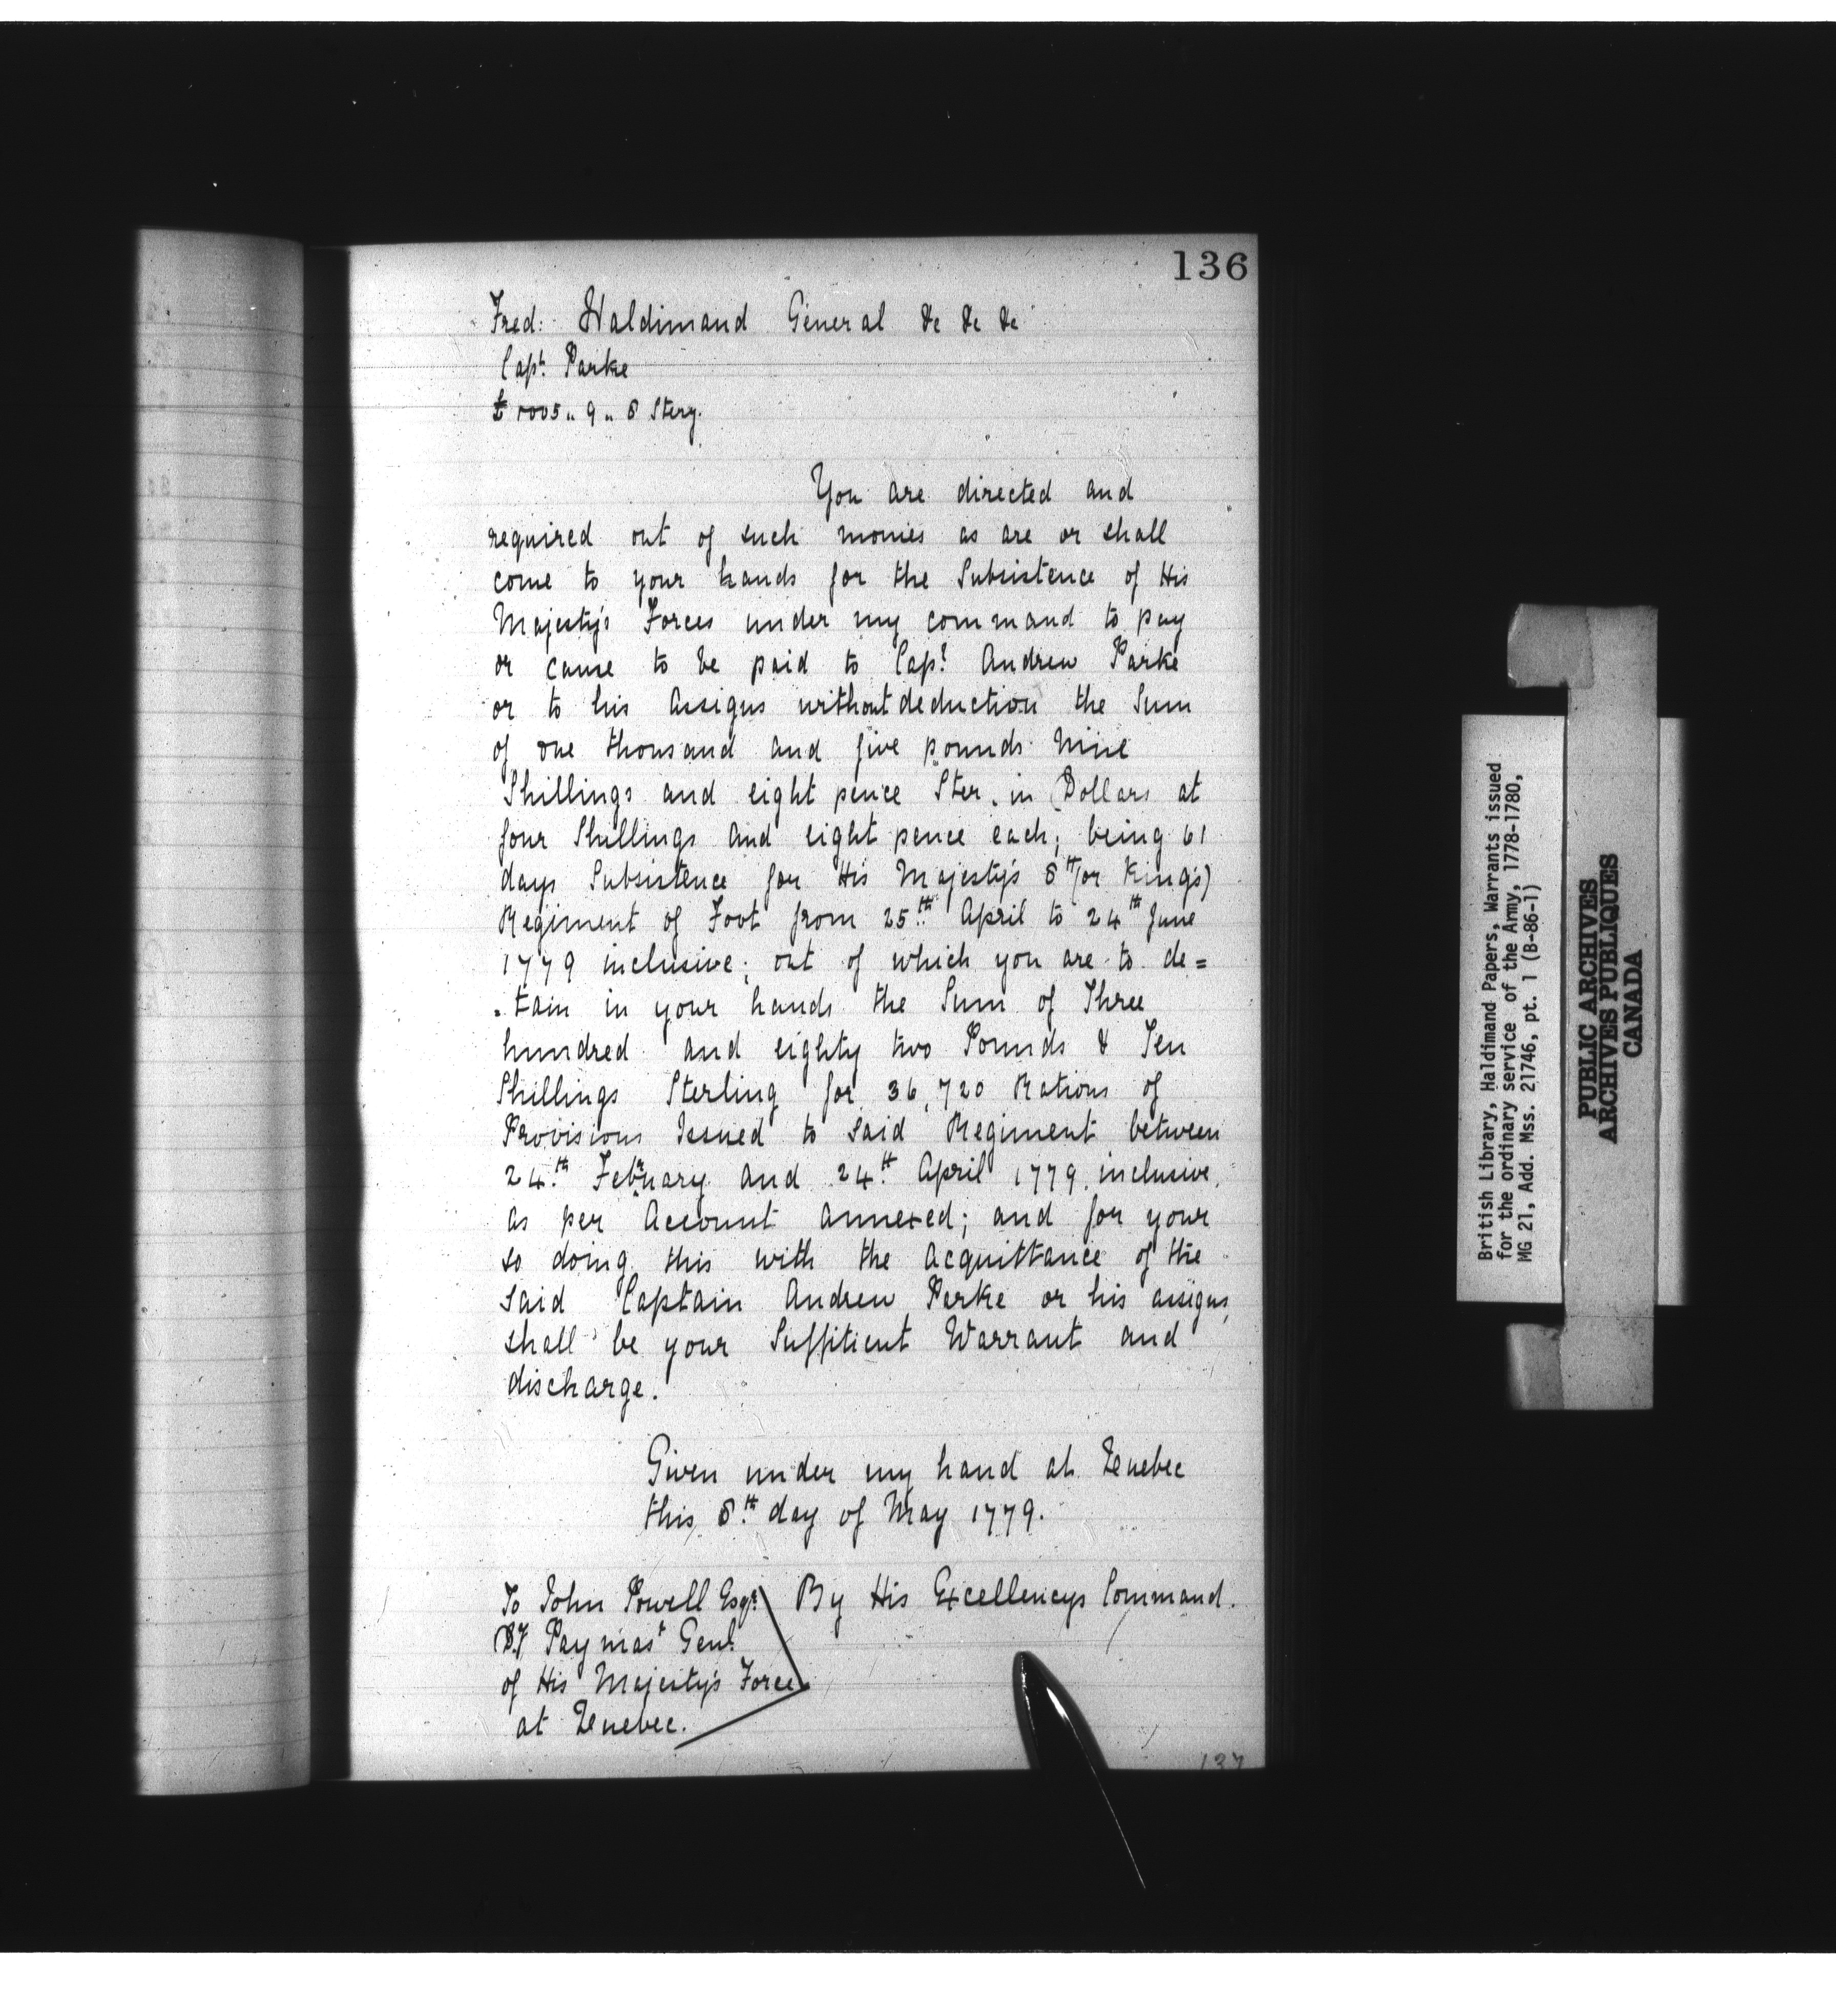 136
Fred: Haldimand General &c &c &c
Capt. Parke
£1005.. 9.. 8 Sterg.
You are directed and
required out of such monies as are or shall
come to your hands for the Subsistence of His
Majesty's Forces under my command to pay
or cause to be paid to Capt. Andrew Parke
or to his Assigns without deduction the Sum
of one thousand and five pounds Nine
Shillings and eight pence Ster. in Dollars at
four Shillings and eight pence each; being 61
days Subsistence for His Majesty's 8th (or King's)
Regiment of Foot from 25th April to 24th June
1779 inclusive; out of which you are to de=
=tain in your hands the Sum of Three
hundred and eighty two Pounds & Ten
Shillings Sterling for 36,720 Rations of
Provisions Issued to said Regiment between
24th February and 24th April 1779 inclusive,
as per Account annexed; and for your
so doing this with the Acquittance of the
said Captain Andrew Parke or his assigns,
shall be your Suffitient Warrant and
discharge.
Given under my hand at Quebec
this 8th day of May 1779.
To John Powell Esqr. By His Excellencys Command.
Paymast Genl.
of His Majesty's Forces
at Quebec.
137
British Library, Haldimand Papers, Warrants issued
for the ordinary service of the Army, 1778-1780,
MG 21, Add. Mss. 21746, pt. 1 (B-86-1)
PUBLIC ARCHIVES
ARCHIVES PUBLIQUES
CANADA